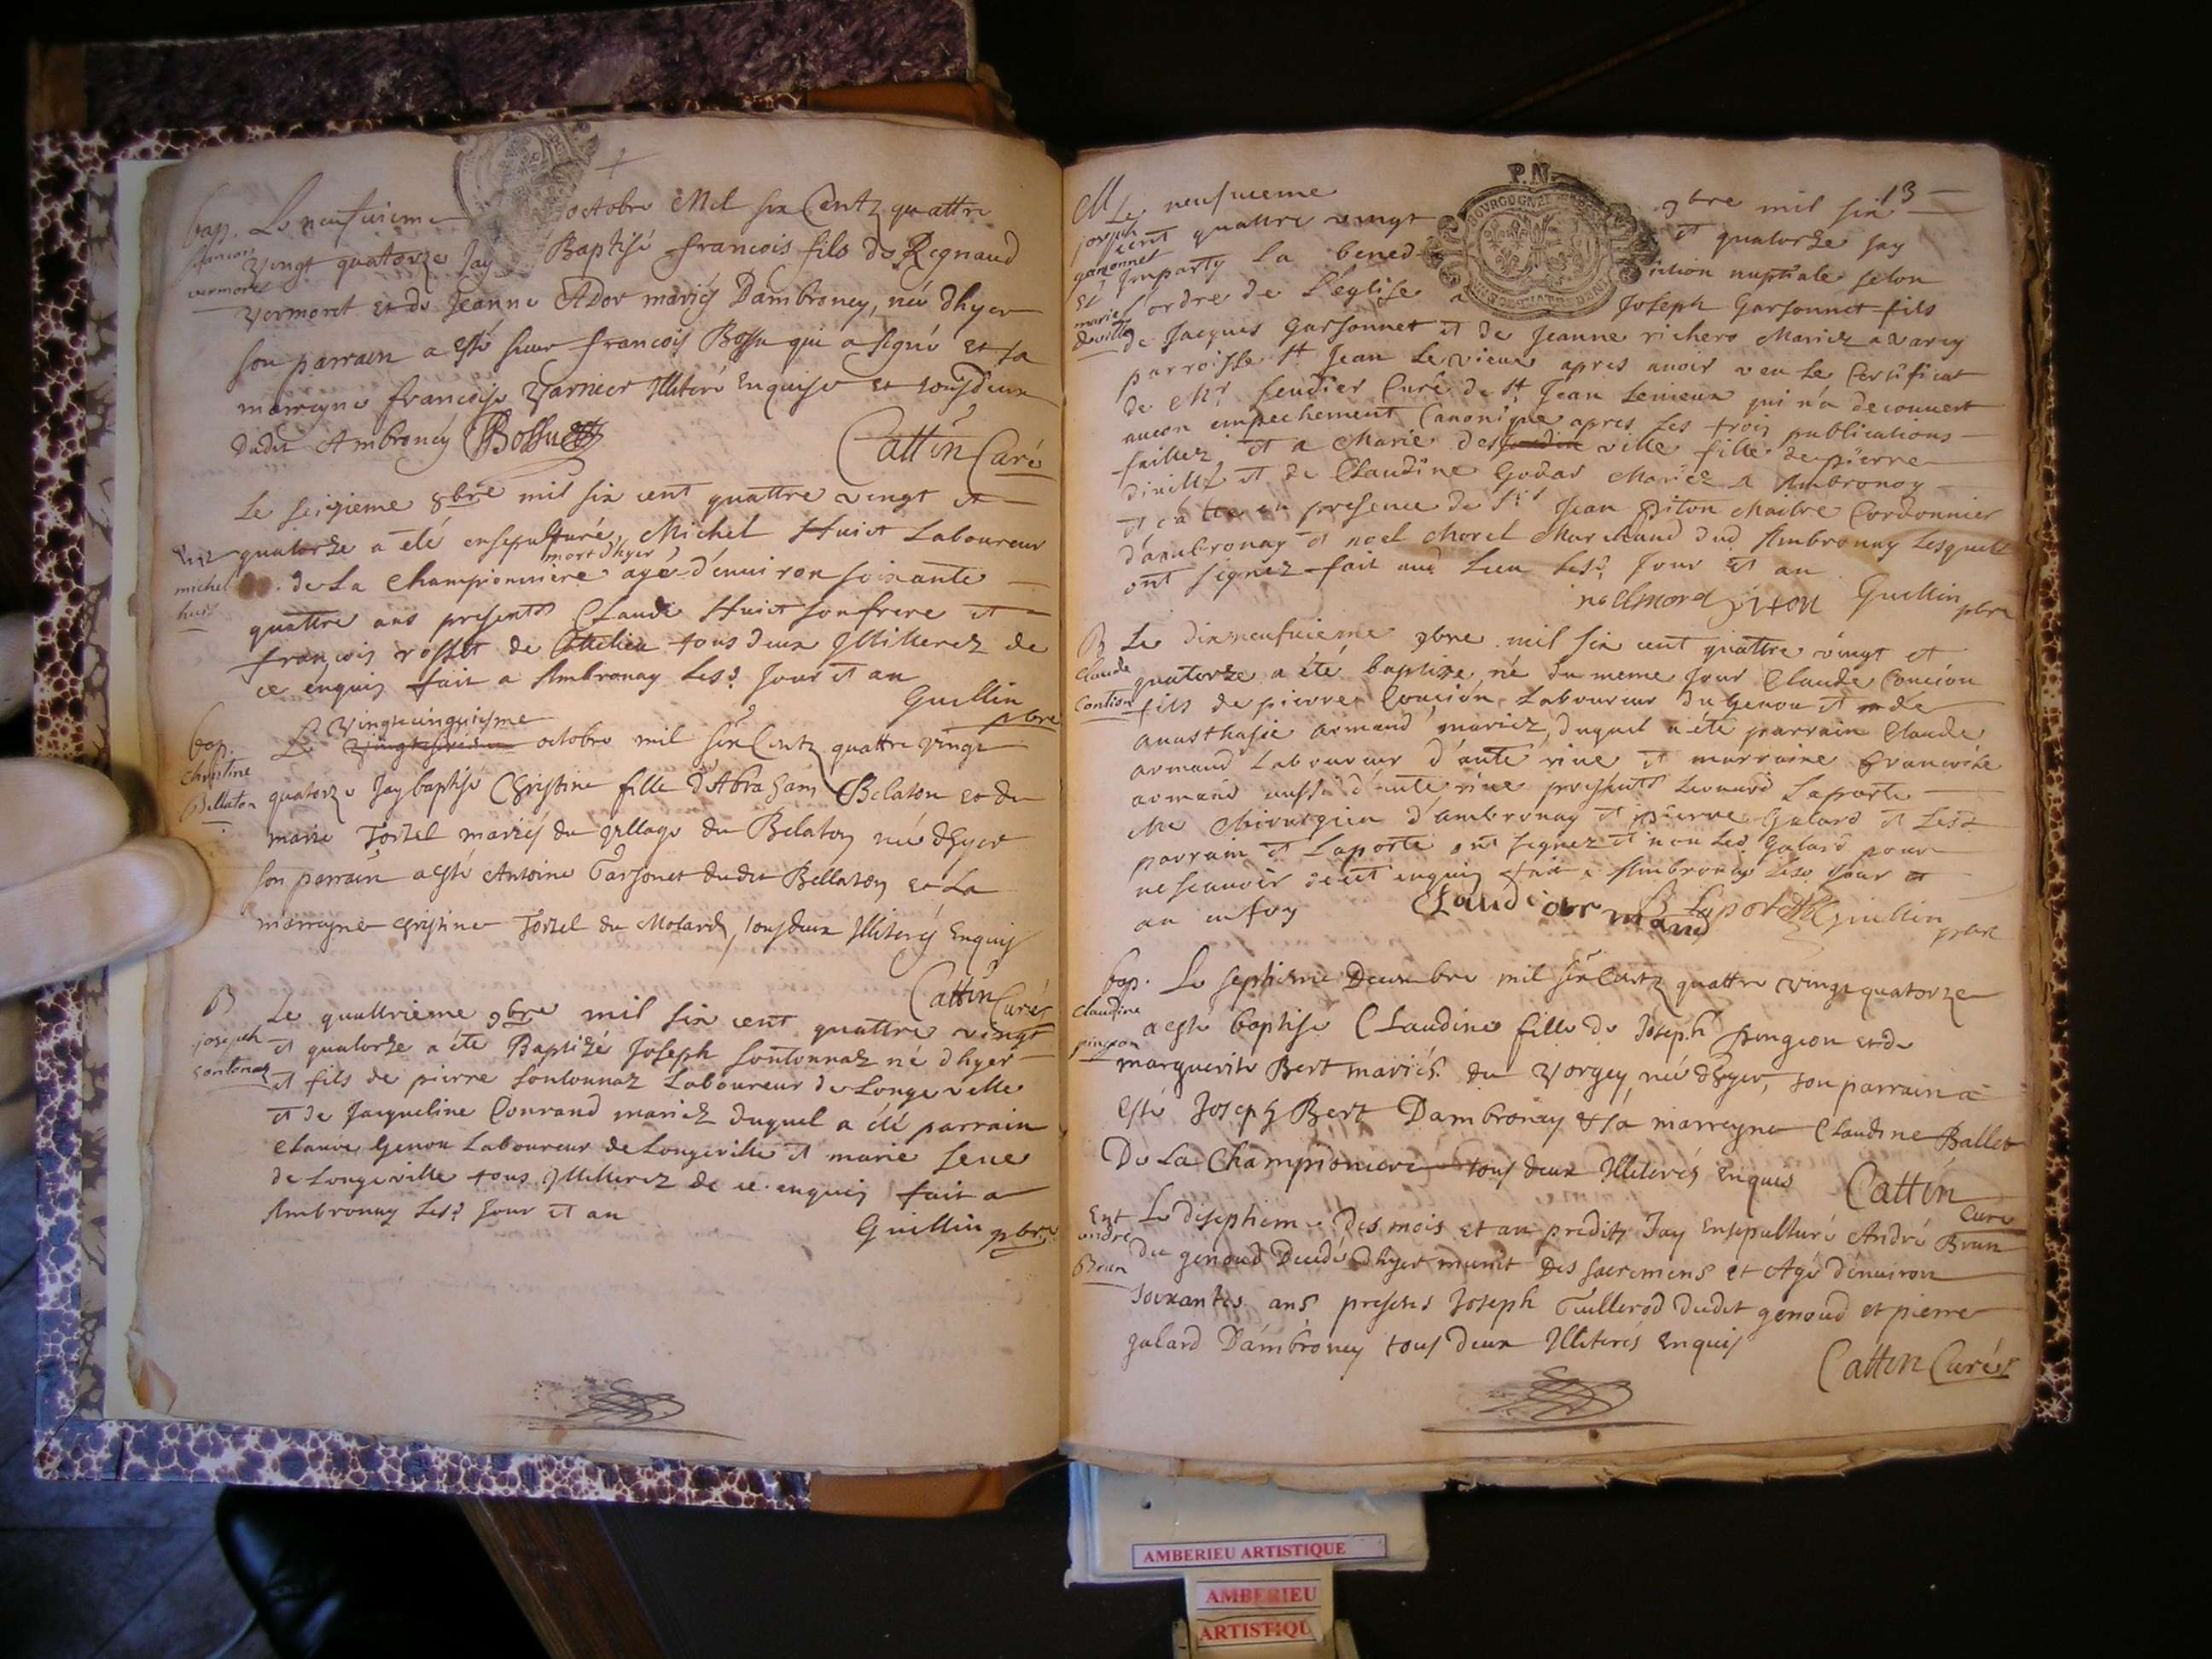 bap. Le neufuieme octobre Mil six Centz quattre
francois vermoret
vingt quatorze Jay Baptisé francois fils de Regnaud
vermoret et de Jeanne Ador mariés Dambroney, né dhyer
son parrain a esté sieur francois Bossu qui a signé et sa
marreyne francoise Varnier Illiteré Enquise et tous deux
dudit Ambroney Bossu
Cattin Curé
Le seizieme 8bre mil six cent quattre vingt et
quatorze a eté ensepulturé, Michel Huiot Laboureur
mort dhyer
michel
de La Championniere agé d'enuiron soixante
quattre ans presents Claude Huiot son frere et
françois rosset de tous deux Illitterez de
ce enquis fait a Ambronay Lesd. Jour et an
Guillin pbre
bap. Le vingtcinquiesme octobre mil six Centz quattre vingt
christine Bellaton
quatorze Jay baptisé Christine fille d'Abraham Belaton et de
marie Tortel mariés du village du Belaton née dhyer
son parrain a esté Antoine Garsonet dudit Bellaton et La
marreyne christine Tortel du Molard, tous deux Illiterés Enquis
Cattin Curé
B Le quattrieme 9bre mil six cent quattre vingt
joseph sontonaz
et quatorze a éte Baptizé Joseph sontonnaz né dhyer
et fils de pierre sontonnaz Laboureur de Longeville
et de Jacqueline Conrand mariez duquel a été parrain
claude Genou Laboureur de Longeville et marie seue
de Longeville tous Illitterez de ce enquis fait a
Ambronay Lesd. Jour et an
Guillin pbre
P.N.
13
M Le neufuieme 9bre mil six
joseph garsonnet et marie deville
cent quattre vingt et quatorze jay
Imparty La benediction nuptiale selon
l'ordre de L'eglise a Joseph Garsonnet fils
de Jacques Garsonnet et de Jeanne richero Mariez a varey
parroisse st Jean Le vieux apres auoir veu Le Certificat
de Mr seudier Curé de st Jean Levieux qui n'a decouuert
aucun empechement Canonique apres Les trois publications
faittez, et a Marie des ville fille de pierre
diville et de Claudine Godar Mariez a Ambronay
et ca en presence de Jean piton Maitre Cordonnier
d'ambronay et noel Morel Marchand dud Ambronay Lesquels
ont signez fait aud Lieu Lesd. Jour et an
noelmorel piton Guillin pbre
B Le dixneufuieme 9bre mil six cent quattre vingt et
Claude Contion
quatorze a été baptize, né du meme Jour Claude Concion
fils de pierre Concion Laboureur du Genou et de
anasthasie armand mariez, duquel a éte parrain Claude
armand Laboureur d'aute riue et marraine francoise
armand aussi d'aute riue presents Leonard Laporte
Me Chirurgien d'ambronay et pierre Galard et Lesd
parrain et Laporte ont signez et non Led. Galard pour
ne scauoir de cet enquis fait a Ambronay Lesd Jour et
an en foy
Claudi armand Laporte Guillin pbre
bap. Le septieme Decembre mil six Centz quattre vingt quatorze
claudine pingeon
a esté baptisé Claudine fille de Joseph pingeon et de
marguerite Bert mariés du Vorgey, née dhyer, son parrain a
esté Joseph Bert Dambronay et sa marreyne Claudine Ballet
De La Championiere tous deux Illiterés Enquis Cattin Curé
Ent Le disseptieme Des mois et an predits Jay Ensepulturé André Brun
andré Brun
du genoud Decedé Dhyer munit Des sacremens et Agé d'enuiron
soixantes ans presents Joseph Guillerod dudit genoud et pierre
galard Dambroney tous deux Illiterés Enquis
Cattin Curé
AMBERIEU ARTISTIQUE
AMBERIEU
ARTISTIQU